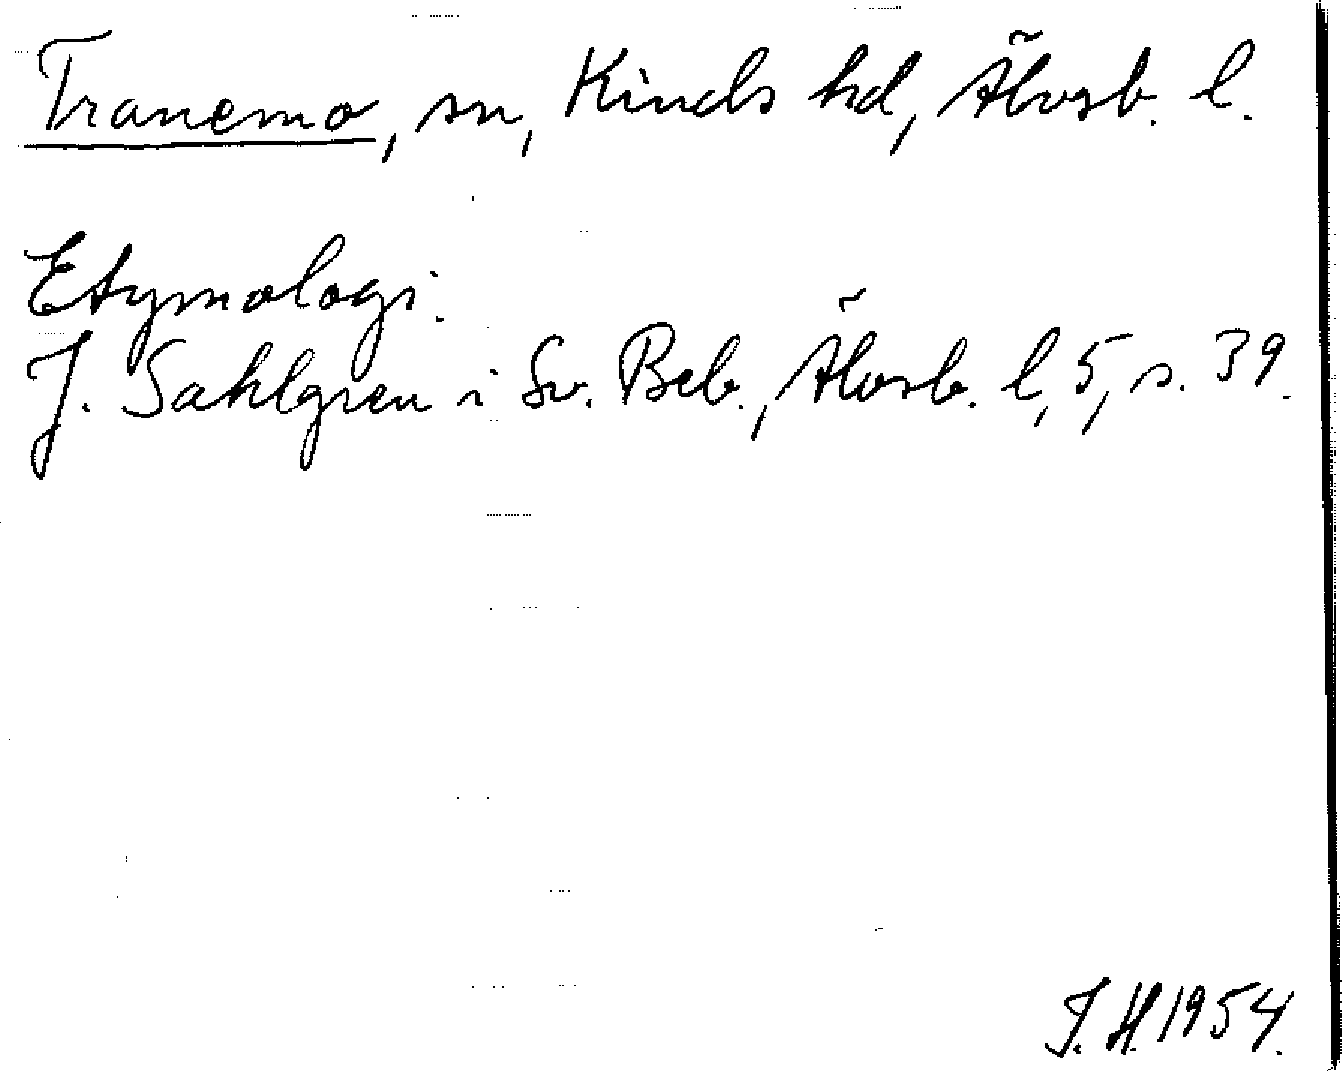 Tranemo, sn, Kinds hd, Älvsb. l.
Etymologi.
J. Sahlgren i Sv. Beb., Älvsb. l, 5, s. 39.
J. H. 1954.